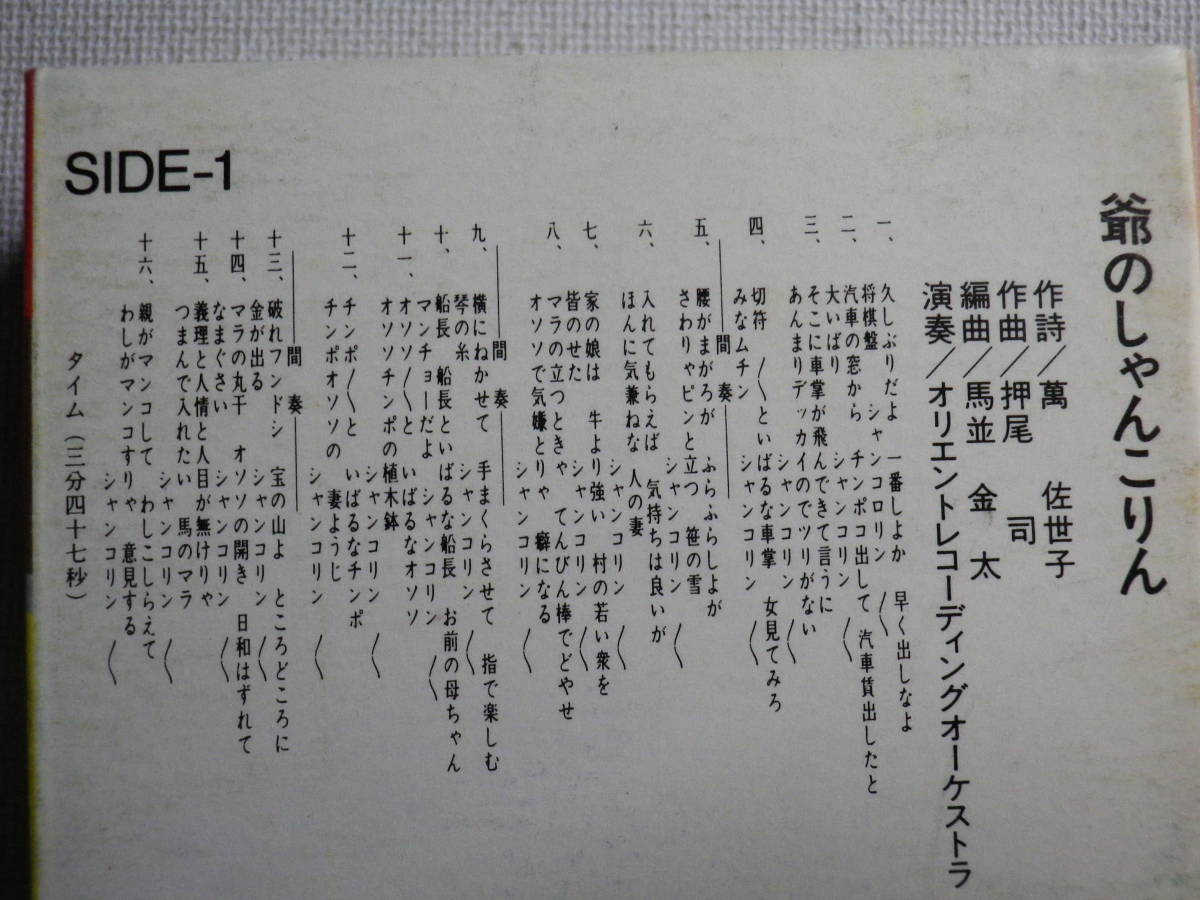 爺のしゃんこりん
作詩/萬 佐世子
作曲/押尾 司
編曲/馬並 金太
演奏/オリエントレコーディングオーケストラ
SIDE-1
一、久しぶりだよ 一番しよか 早く出しなよ
将棋盤 シャンコロリン 〱
二、汽車の窓から チンポコ出して 汽車賃出したと
大いばり シャンコリン 〱
三、そこに車掌が飛んできて言うに
あんまりデッカイのでツリがない
シャンコリン 〱
四、切符 〱といばるな車掌 女見てみろ
みなムチン シャンコリン 〱
間奏
五、腰がまがろが ふらふらしよが
さわりゃピンと立つ 笹の雪
シャンコリン 〱
六、入れてもらえば 気持ちは良いが
ほんに気兼ねな 人の妻
シャンコリン 〱
七、家の娘は 牛より強い 村の若い衆を
皆のせた シャンコリン 〱
八、マラの立つときゃ てんびん棒でどやせ
オソソで気嫌とりゃ 癖になる
シャンコリン 〱
間奏
九、横にねかせて 手まくらさせて 指で楽しむ
琴の糸 シャンコリン 〱
十、船長 船長といばるな船長 お前の母ちゃん
マンチョーだよ シャンコリン 〱
十一、オソソ〱と いばるなオソソ
オソソチンポの植木鉢
シャンコリン 〱
十二、チンポ〱と いばるなチンポ
チンポオソソの 妻ようじ
シャンコリン 〱
間奏
十三、破れフンドシ 宝の山よ ところどころに
金が出る シャンコリン 〱
十四、マラの丸干 オソソの開き 日和はずれて
なまぐさい シャンコリン 〱
十五、義理と人情と人目が無けりゃ
つまんで入れたい 馬のマラ
シャンコリン 〱
十六、親がマンコして わしこしらえて
わしがマンコすりゃ 意見する
シャンコリン 〱
タイム(三分四十七秒)